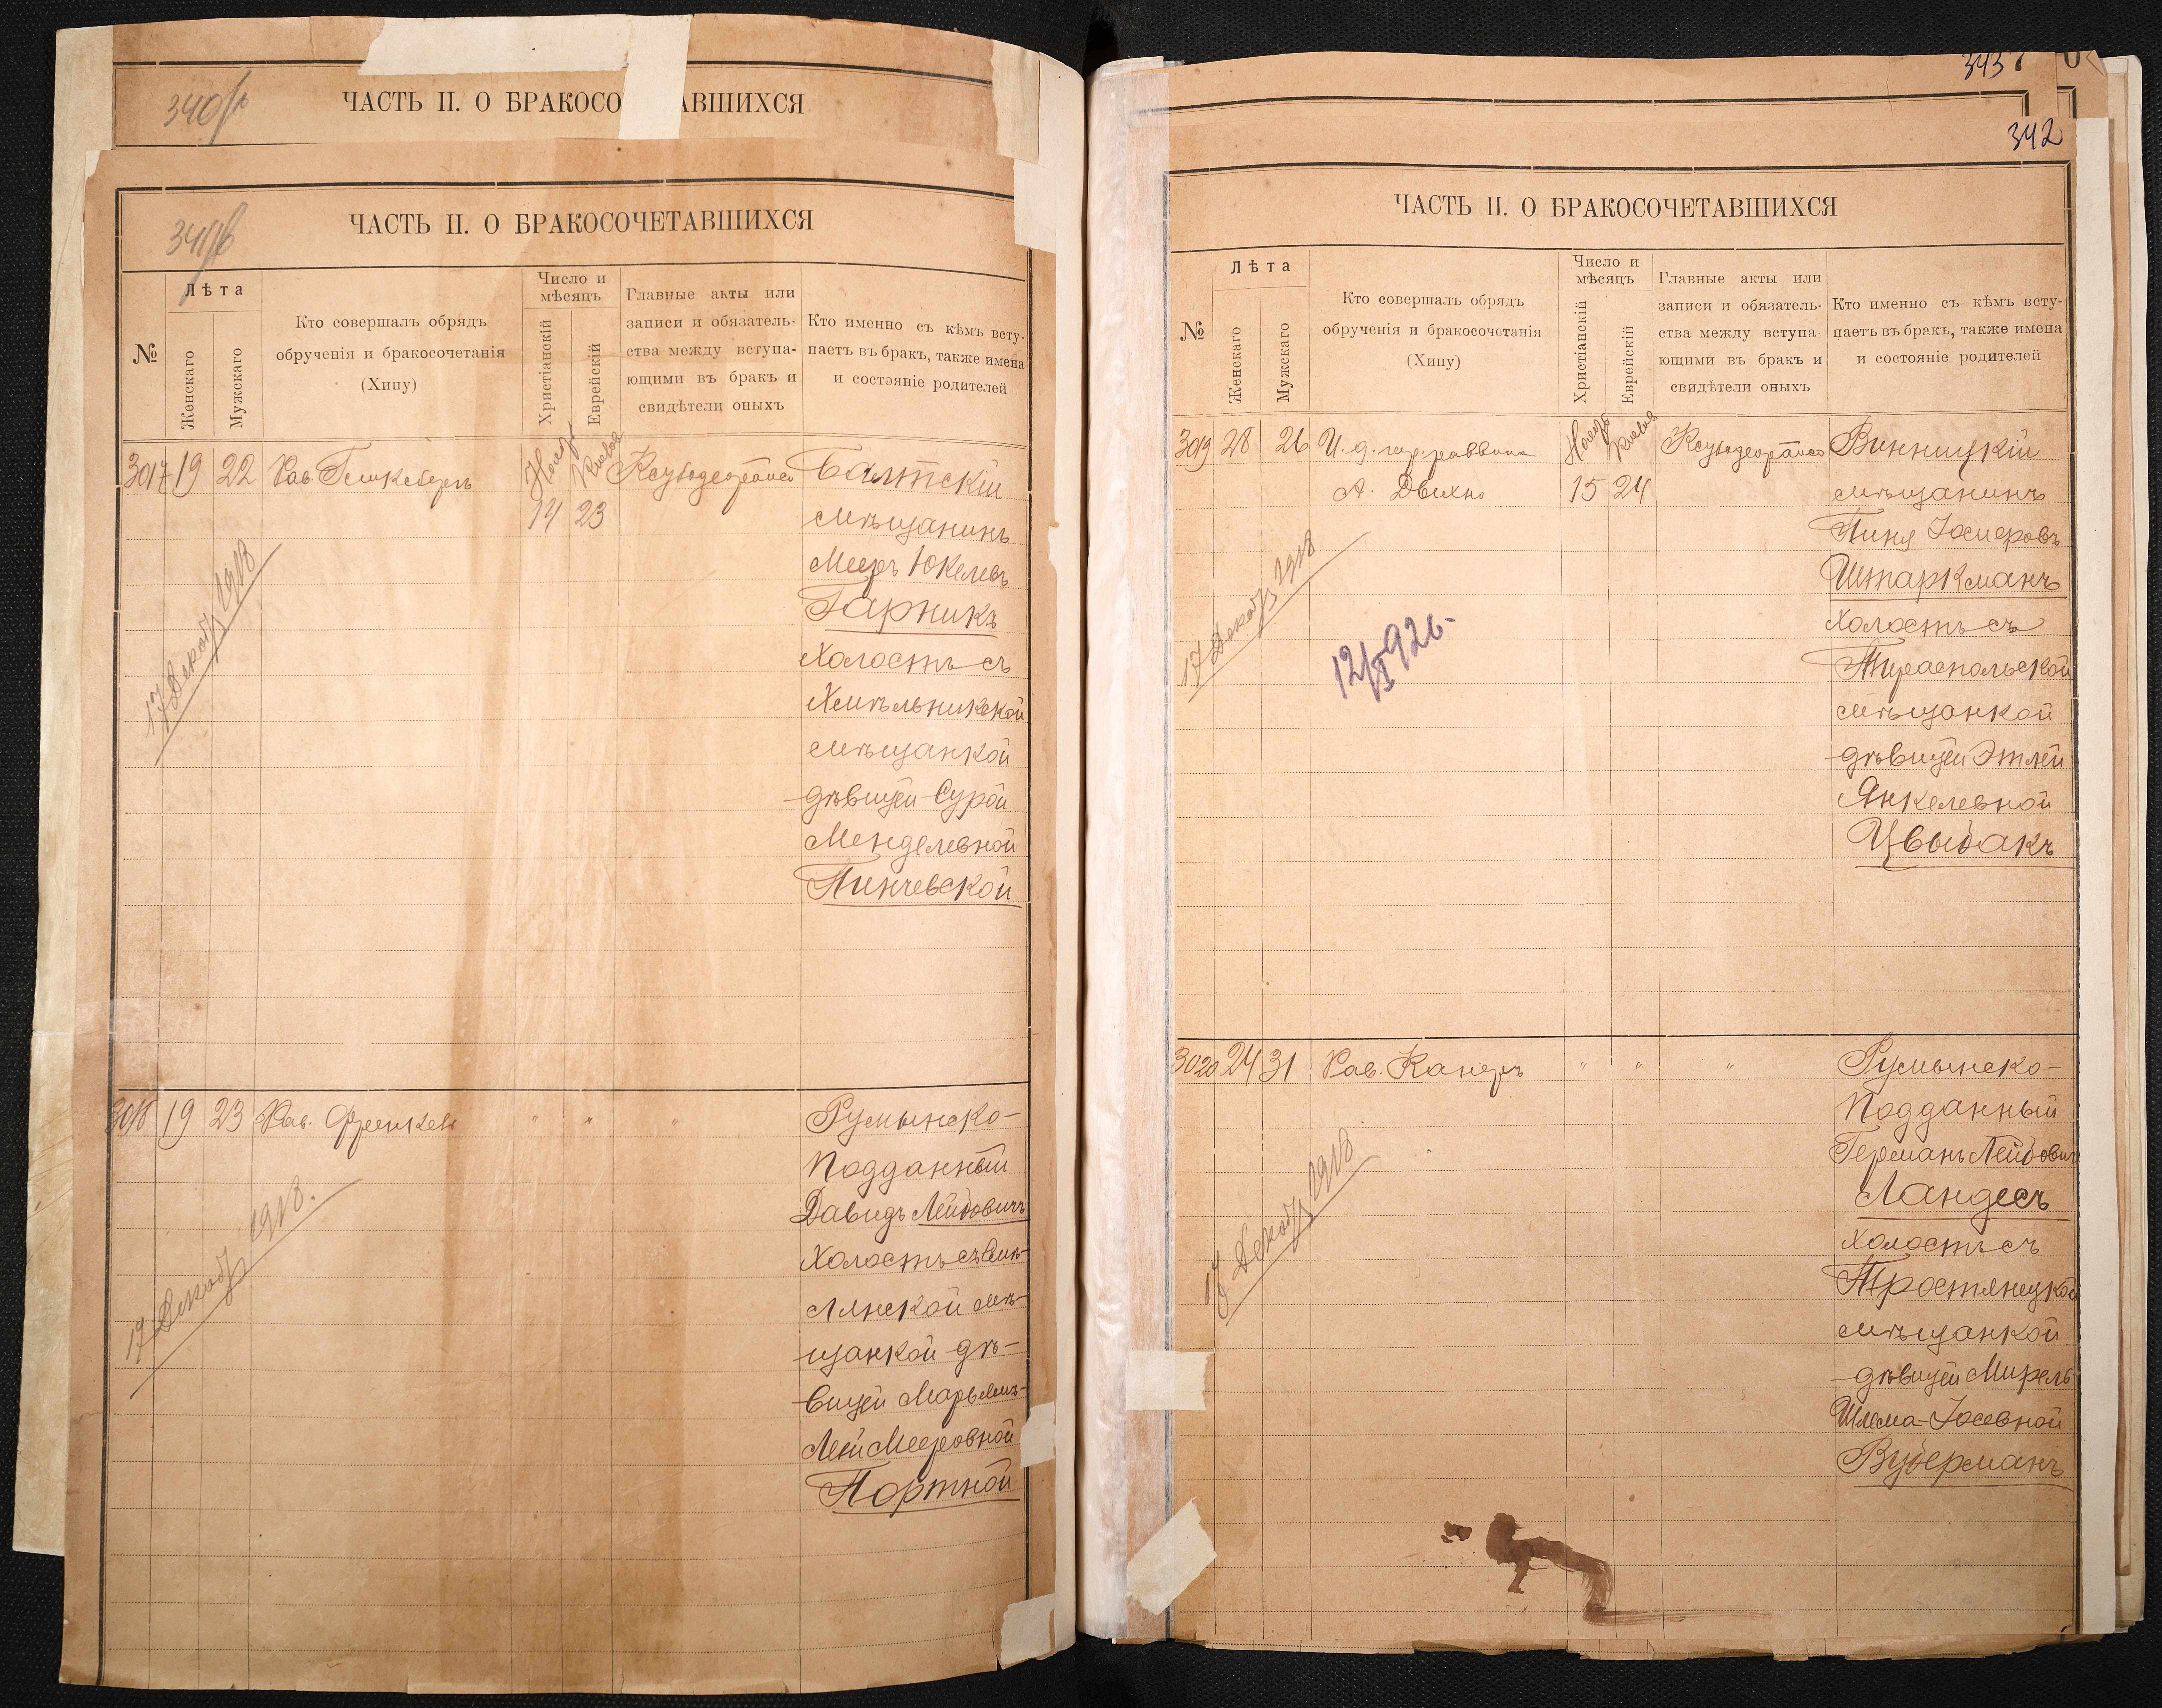 340
ЧАСТЬ II. О БРАКОСО АВШИХСЯ
341
ЧАСТЬ II. О БРАКОСОЧЕТАВШИХСЯ
№
Лѣта
Женскаго
Мужскаго
Кто совершалъ обрядъ
обрученія и бракосочетанія
(Хипу)
Число и
мѣсяцъ
Христіанскій
Еврейскій
Главные акты или
записи и обязатель-
ства между вступа-
ющими въ бракъ и
свидѣтели оныхъ
Кто именно съ кѣмъ всту-
паетъ въ бракъ, также имена
и состояніе родителей
3017 19 22 Рав.
14 23
17 Декабр 1918
Балтскій
мѣщанинъ
Мееръ Юкелевъ
Гарникъ
холостъ съ
Хмѣльникской
мѣщанкой
дѣвицей Сурой
Менделевной
Пинчевской
3018 19 23 Рав. Френкель " " "
17 Декабр 1918.
Румынско-
подданный
Давидъ Лейбовичъ
холостъ съ
мѣ-
щанкой дѣ-
вицей
Лей Мееровной
Портной
343
342
ЧАСТЬ II. О БРАКОСОЧЕТАВШИХСЯ
№
Лѣта
Женскаго
Мужскаго
Кто совершалъ обрядъ
обрученія и бракосочетанія
(Хипу)
Число и
мѣсяцъ
Христіанскій
Еврейскій
Главные акты или
записи и обязатель-
ства между вступа-
ющими въ бракъ и
свидѣтели оныхъ
Кто именно съ кѣмъ всту-
паетъ въ бракъ, также имена
и состояніе родителей
3019 28 26 И. д. гор. раввина
А. 15 24
17 Декабр 1918
Винницкій
мѣщанинъ
Пиня
Штаркманъ
холостъ съ
Тираспольской
мѣщанкой
дѣвицей Этлей
Янкелевной
Цвыбакъ
3020 24 31 Рав. Канеръ " " "
17 Декабр 1918
Румынско-
подданный
Германъ Лейбовичъ
Ландесъ
холостъ съ
Тростянецкой
мѣщанкой
дѣвицей Мирель
Шлема-Іосевной
Вуберманъ